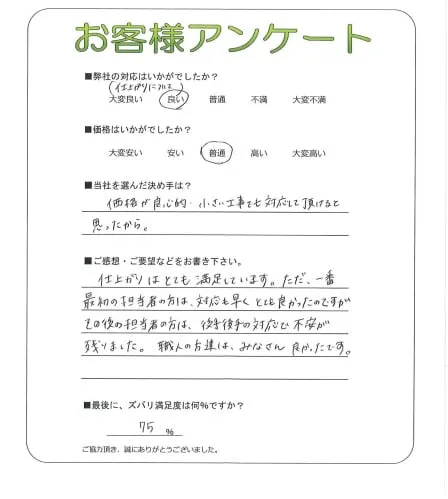 お客様アンケート
■弊社の対応はいかがでしたか?
(仕上がりについて
大変良い 良い 普通 不満 大変不満
■価格はいかがでしたか?
大変安い 安い 普通 高い 大変高い
■当社を選んだ決め手は?
価格が良心的・小さい工事でも対応して頂けると
思ったから。
■ご感想・ご要望などをお書き下さい。
仕上がりはとても満足しています。ただ、一番
最初の担当者の方は、対応も早くとても良かったのですが
その後の担当者の方は、後手後手の対応で不安が
残りました。職人の方達は、みなさん良かったです。
■最後に、ズバリ満足度は何%ですか?
75 %
ご協力頂き、誠にありがとうございました。